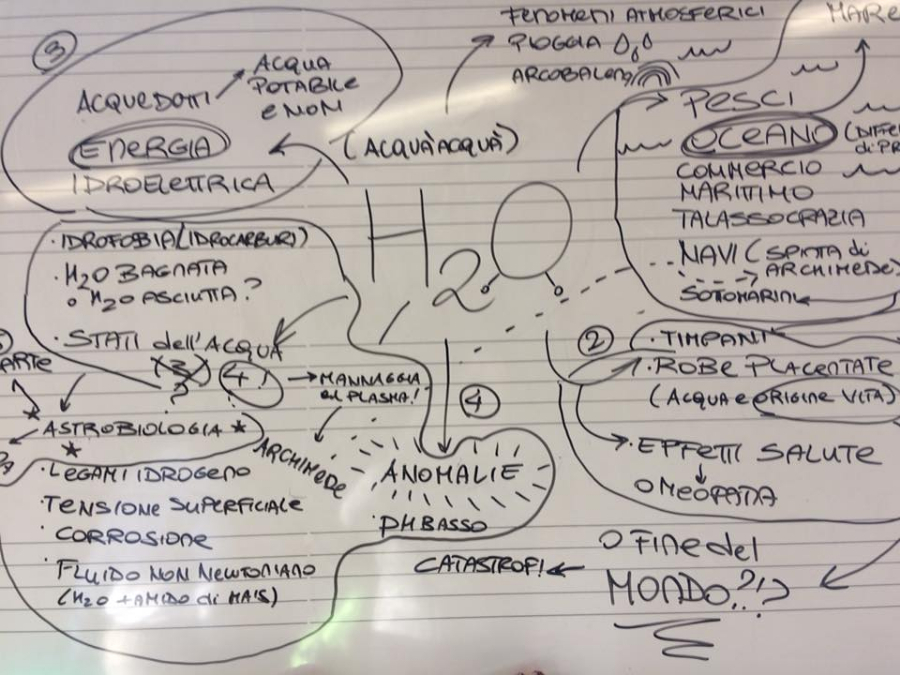 3
ACQUEDOTTI
ACQUA
POTABILE
E NON
ENERGIA
IDROELETTRICA
FENOMENI ATMOSFERICI
PIOGGIA
ARCOBALENO
(ACQUÀACQUÀ)
MARE
PESCI
OCEANO
COMMERCIO
MARITTIMO
TALASSOCRAZIA
NAVI (SPINTA di
ARCHIMEDE)
SOTTOMARINI
H2O
· IDROFOBIA (IDROCARBURI)
· H2O BAGNATA
o H2O ASCIUTTA?
· STATI dell'ACQUA
3
?
4!
→ MANNAGGIA
al PLASMA!
ARCHIMEDE
ASTROBIOLOGIA *
· LEGAMI IDROGENO
· TENSIONE SUPERFICIALE
· CORROSIONE
· FLUIDO NON NEWTONIANO
(H2O + AMIDO di MAIS)
4
ANOMALIE
· PH BASSO
2
· TIMPANI
· ROBE PLACENTATE
(ACQUA e ORIGINE VITA)
· EFFETTI SALUTE
OMEOPATIA
O FINE del
MONDO?!?
CATASTROFI